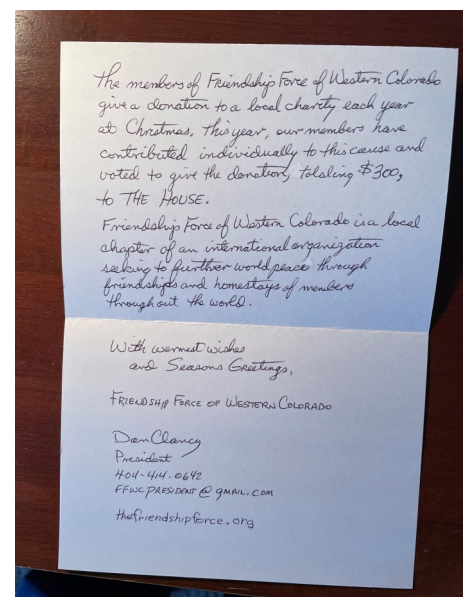 The members of Friendship Force of Western Colorado
give a donation to a local charity each year
at Christmas. This year, our members have
contributed individually to this cause and
voted to give the donation, totaling $300,
to THE HOUSE.
Friendship Force of Western Colorado is a local
chapter of an international organization
seeking to further world peace through
friendships and homestays of members
throughout the world.
With warmest wishes
and Seasons Greetings,
FRIENDSHIP FORCE OF WESTERN COLORADO
Dan Clancy
President
404-414-0642
FFWCPRESIDENT@gmail.com
thefriendshipforce.org